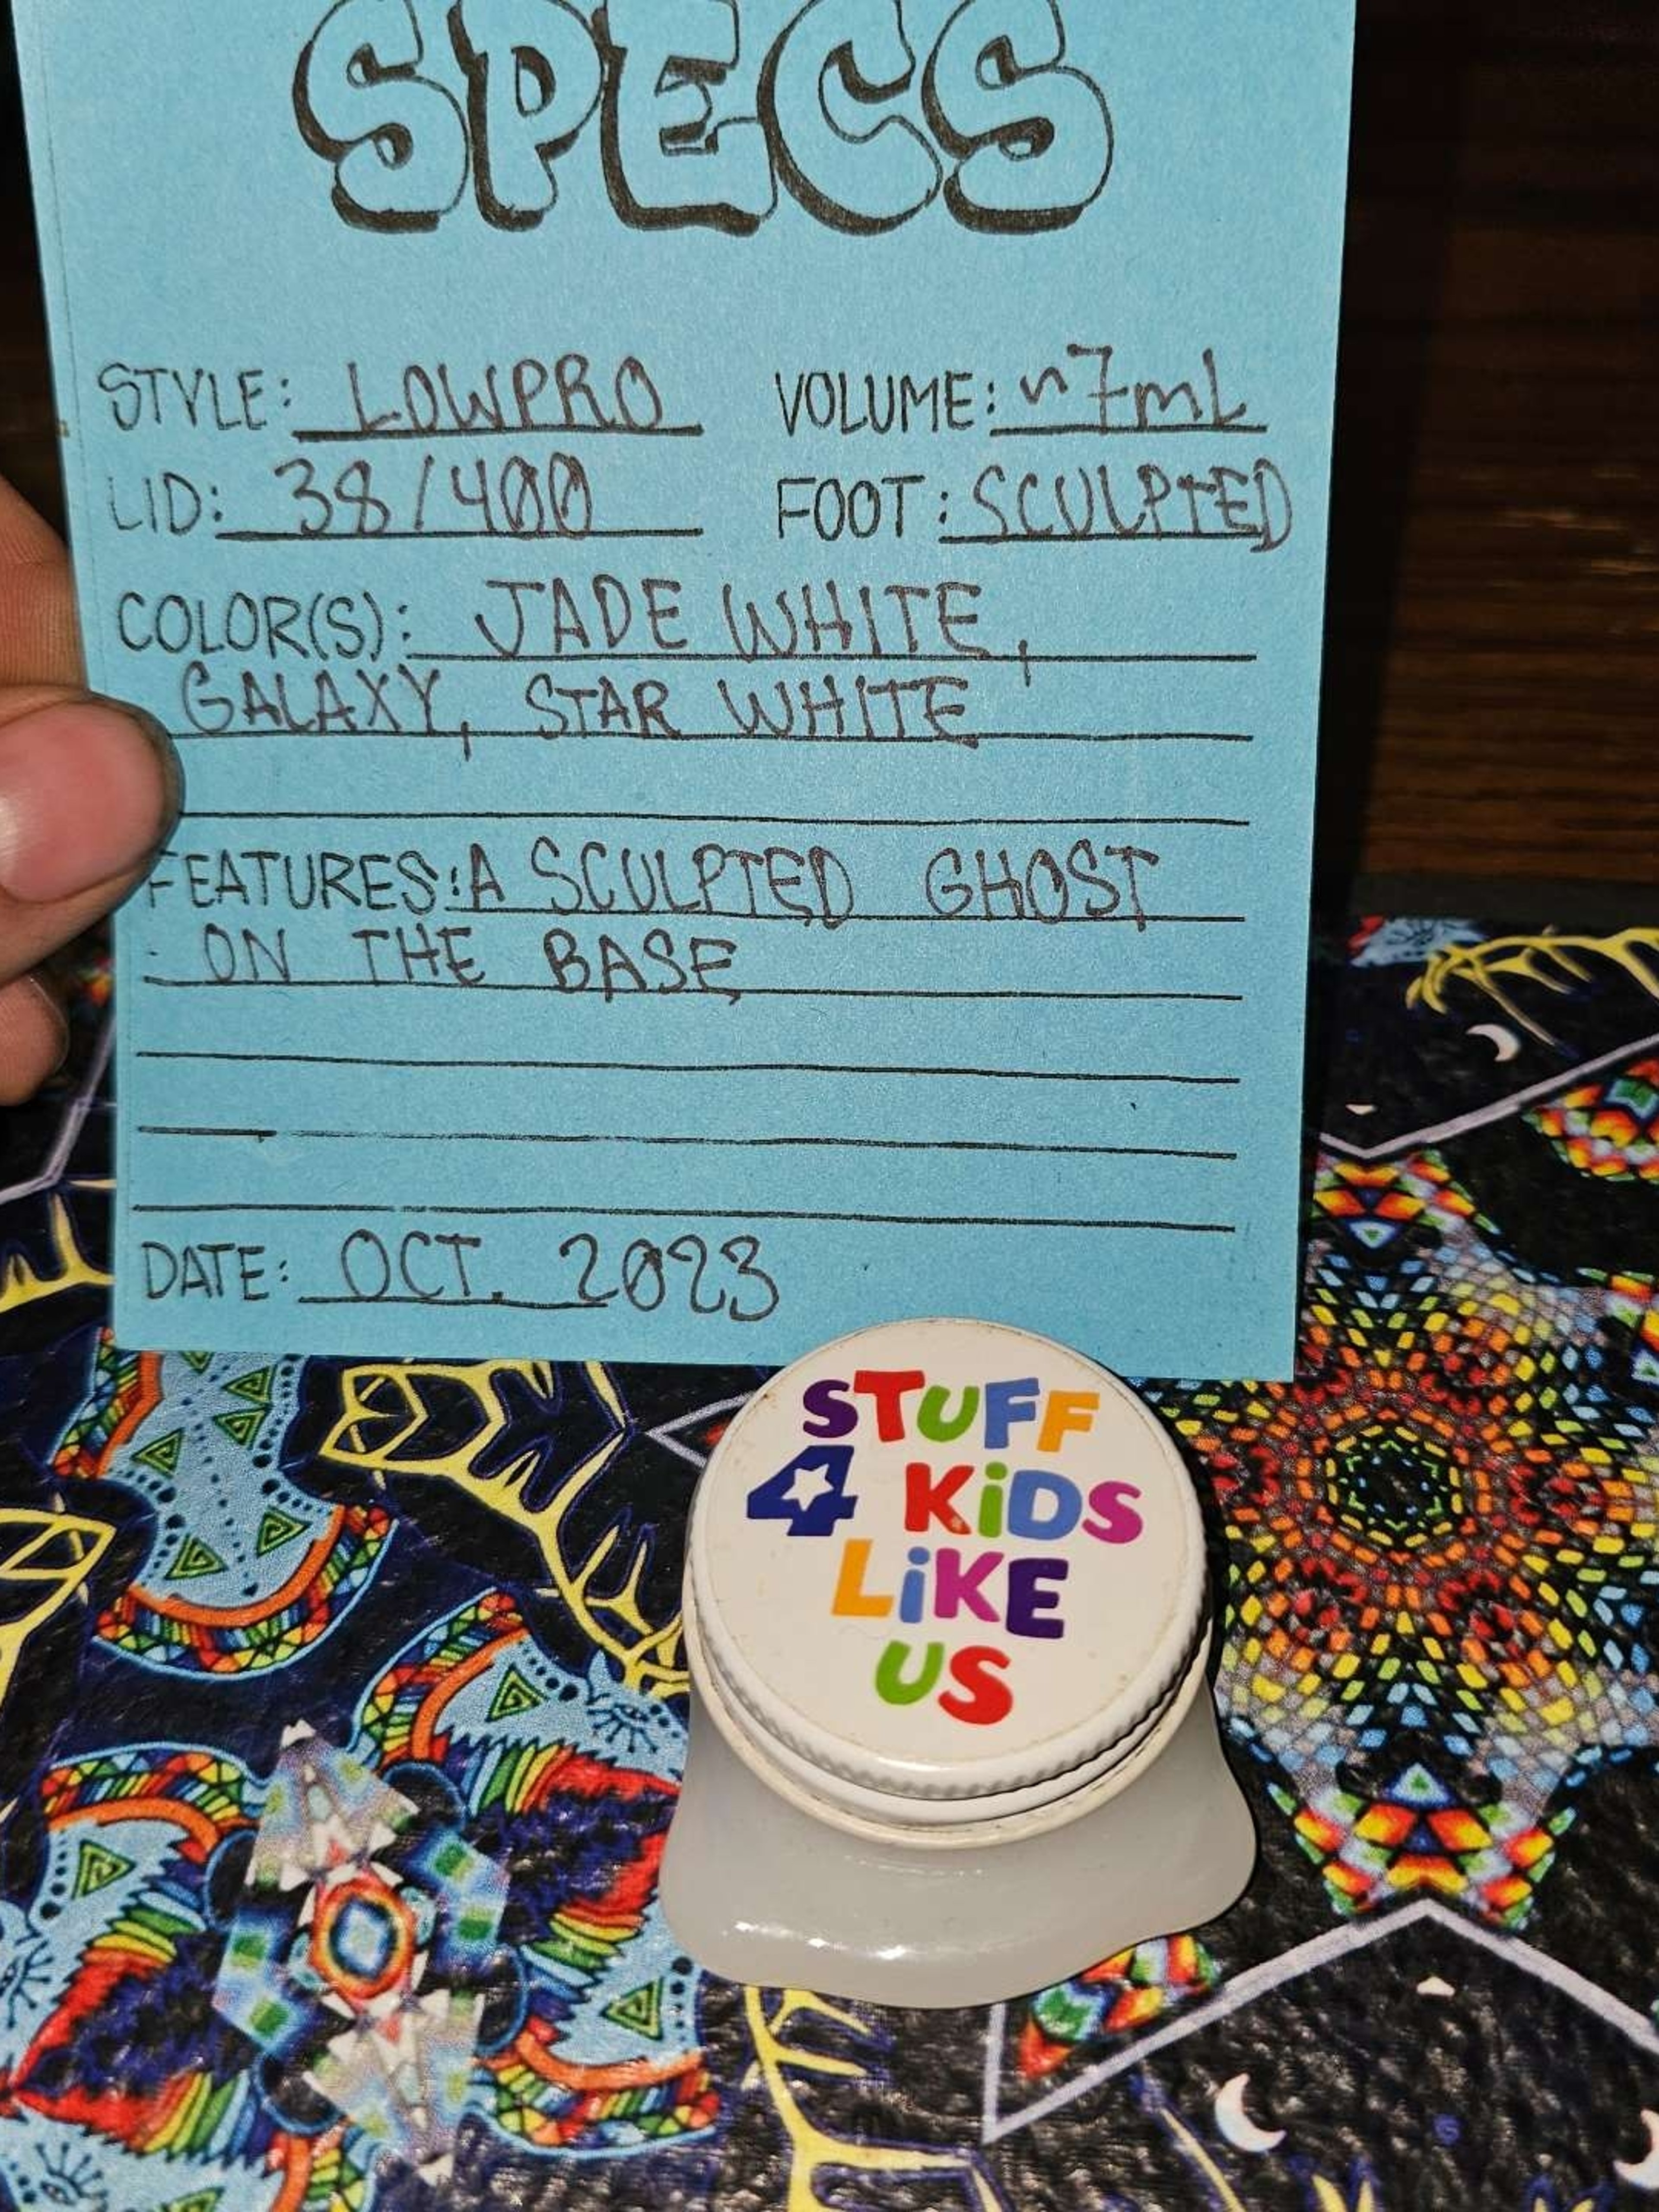 SPECS
STYLE: LOWPRO VOLUME: ~7mL
LID: 38/400 FOOT: SCULPTED
COLOR(S): JADE WHITE,
GALAXY, STAR WHITE
FEATURES: A SCULPTED GHOST
ON THE BASE
DATE: OCT. 2023
STUFF
4 KiDS
LiKE
US